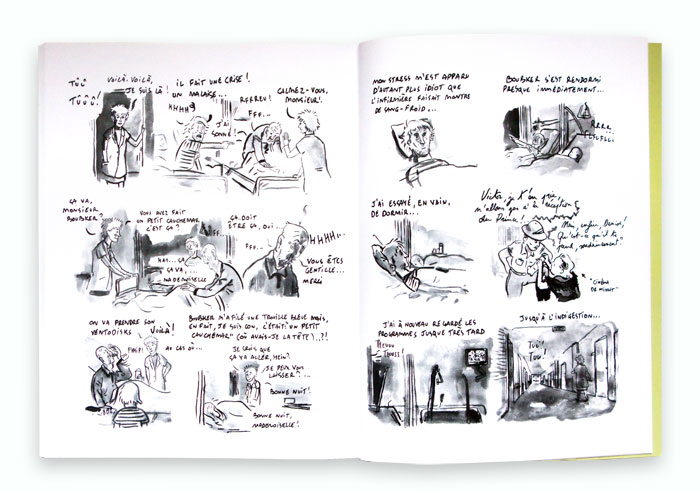 TÛÛ
TÛÛÛ!
VOILÀ, VOILÀ,
JE SUIS LÀ!
IL FAIT UNE CRISE!
UN MALAISE...
HHHH
J'AI
SONNÉ!
RFFREU!
FFF...
CALMEZ-VOUS,
MONSIEUR!
ÇA VA,
MONSIEUR
BOUBKER?
VOUS AVEZ FAIT
UN PETIT CAUCHEMAR
C'EST ÇA?
ÇA VA,...
MADEMOISELLE
ÇA DOIT
ÊTRE ÇA, OUI...
FFF...
FFF...
HHHH...
VOUS ÊTES
GENTILLE...
MERCI
ON VA PRENDRE SON
VENTODISKS
VOILÀ!
AU CAS OÙ...
BOUBKER M'A FILÉ UNE TROUILLE BLEUE MAIS,
EN FAIT, JE SUIS CON, C'ÉTAIT UN "PETIT
CAUCHEMAR" (OÙ AVAIS-JE LA TÊTE)..?!
JE CROIS QUE
ÇA VA ALLER, HEIN?
JE PEUX VOUS
LAISSER?...
BONNE NUIT!
BONNE NUIT,
MADEMOISELLE!
MON STRESS M'EST APPARU
D'AUTANT PLUS IDIOT QUE
L'INFIRMIÈRE FAISAIT MONTRE
DE SANG-FROID...
BOUBKER S'EST RENDORMI
PRESQUE IMMÉDIATEMENT...
RRRR...
J'AI ESSAYÉ, EN VAIN,
DE DORMIR...
Victor, je t'en prie,
n'allons pas à la réception
du Prince!
Mais, enfin, Denise,
Qu'est-ce qu'il te
prend, soudainement?
"CINÉMA
DE MINUIT"
J'AI À NOUVEAU REGARDÉ LES
PROGRAMMES JUSQUE TRÈS TARD
JUSQU'À L'INDIGESTION...
TUÛ!
TUÛ!